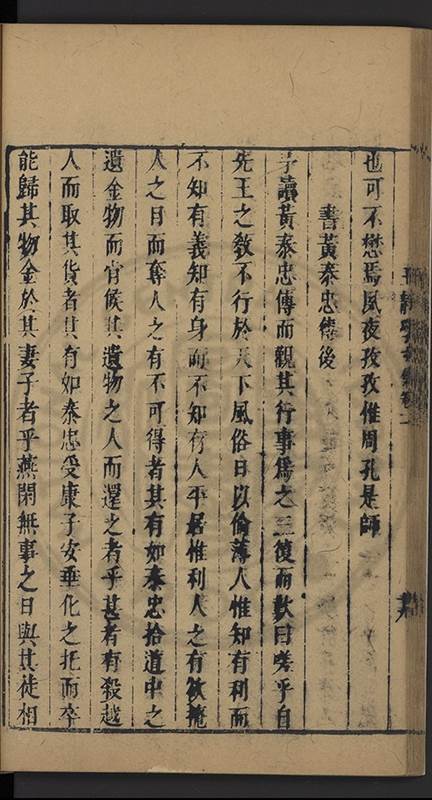 也可不懋焉夙夜孜孜惟周孔是師
書黃泰忠傳後
予讀黃泰忠傳而觀其行事爲之三復而歎曰嗟乎自
先王之敎不行於天下風俗日以偷薄人惟知有利而
不知有義知有身而不知有人平居惟利人之有欲掩
人之目而奪人之有不可得者其有如泰忠拾道中之
遺金物而官候其遺物之人而還之者乎甚者有殺越
人而取其貨者其有如泰忠受康子安垂化之托而卒
能歸其物金於其妻子者乎燕閑無事之日與其徒相